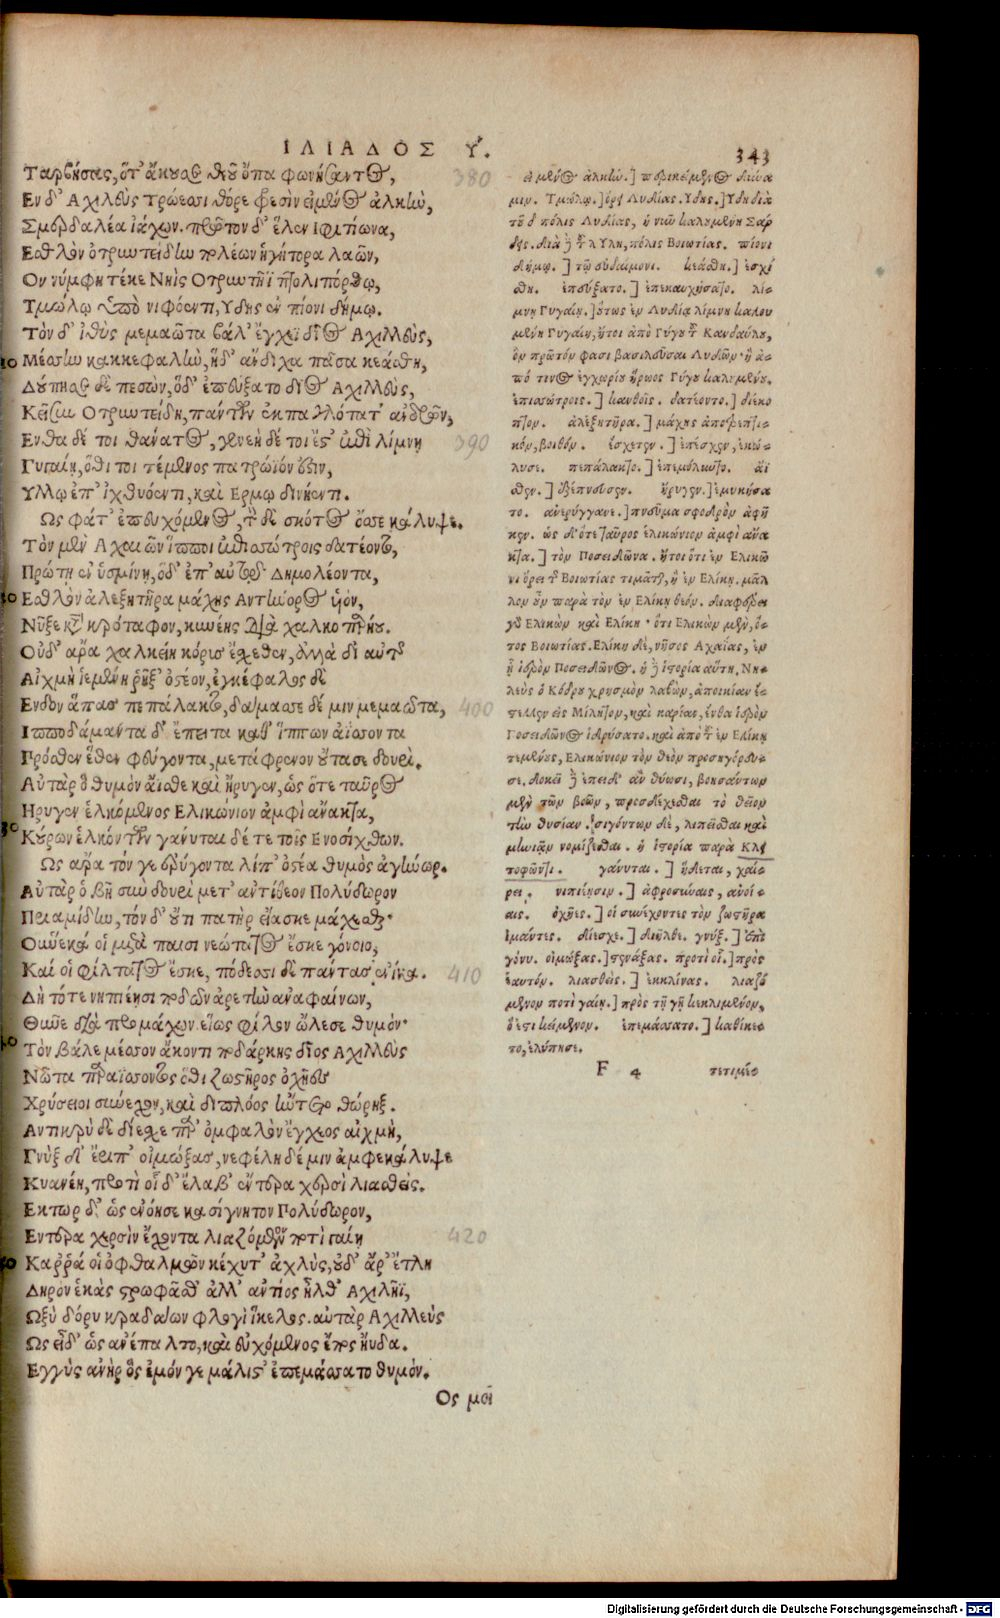 ΙΛΙΑΔΟΣ Υ.
343
Ταρβήσας, ὅτ' ἄκουσε θεοῦ ὄπα φωνήσαντος,
380
Εν δ' Αχιλεὺς Τρώεσσι θόρε φρεσὶν εἱμένος ἀλκὴν,
Σμερδαλέα ἰάχων. πρῶτον δ' ἕλεν Ιφιτίωνα,
Εσθλὸν ὀτρυντείδην πολέων ἡγήτορα λαῶν,
Ον νύμφη τέκε Νηῒς Οτρυντῆϊ πτολιπόρθῳ,
Τμώλῳ ὑπὸ νιφόεντι, Υδης ἐν πίονι δήμῳ.
Τὸν δ' ἰθὺς μεμαῶτα βάλ' ἔγχεϊ δῖος Αχιλλεὺς,
Μέσσην κακκεφαλὴν, ἡ δ' ἄνδιχα πᾶσα κεάσθη,
Δούπησε δὲ πεσὼν, ὁ δ' ἐπεύξατο δῖος Αχιλλεὺς,
Κεῖσαι Οτρυντείδη, πάντων ἐκπαγλότατ' ἀνδρῶν,
Ενθα δέ τοι θάνατος, γενεὴ δέ τοί ἐς' ἐπὶ λίμνῃ
390
Γυγαίῃ, ὅθι τοι τέμενος πατρώϊόν ἐςιν,
Υλλῳ ἐπ' ἰχθυόεντι, καὶ Ερμῳ δινήεντι.
Ως φάτ' ἐπευχόμενος, τὸν δὲ σκότος ὄσσε κάλυψε.
Τὸν μὲν Αχαιῶν ἵπποι ἐπισσώτροις δατέοντο,
Πρώτῃ ἐν ὑσμίνῃ, ὁ δ' ἐπ' αὐτῷ Δημολέοντα,
Εσθλὸν ἀλεξητῆρα μάχης Αντήνορος υἱόν,
Νῦξε κατὰ κρόταφον, κυνέης διὰ χαλκοπαρῄου.
Οὐδ' ἄρα χαλκείη κόρυς ἔσχεθεν, ἀλλὰ δι' αὐτῆς
Αἰχμὴ ἱεμένη ῥῆξ' ὀςέον, ἐγκέφαλος δὲ
Ενδον ἅπας πεπάλακτο, δάμασσε δέ μιν μεμαῶτα,
400
Ιπποδάμαντα δ' ἔπειτα καθ' ἵππων ἀΐσσοντα
Πρόσθεν ἕθεν φεύγοντα, μετάφρενον οὔτασε δουρὶ.
Αὐτὰρ ὃ θυμὸν ἄϊσθε καὶ ἤρυγεν, ὡς ὅτε ταῦρος
Ηρυγεν ἑλκόμενος Ελικώνιον ἀμφὶ ἄνακτα,
Κούρων ἑλκόντων γάνυται δέ τε τοῖς Ενοσίχθων.
Ως ἄρα τόν γε ἐρύγοντα λίπ' ὀςέα θυμὸς ἀγήνωρ.
Αὐτὰρ ὁ βῆ σὺν δουρὶ μετ' ἀντίθεον Πολύδωρον
Πριαμίδην, τὸν δ' οὔτι πατὴρ εἴασκε μάχεσθαι·
Οὕνεκά οἱ μετὰ παισὶ νεώτατος ἔσκε γόνοιο,
Καί οἱ φίλτατος ἔσκε, πόδεσσι δὲ πάντας ἐνίκα.
410
Δὴ τότε νηπιέῃσι ποδῶν ἀρετὴν ἀναφαίνων,
Θῦνε διὰ προμάχων. εἵως φίλον ὤλεσε θυμόν·
Τὸν βάλε μέσσον ἄκοντι ποδάρκης δῖος Αχιλλεὺς
Νῶτα παραΐσσοντος ὅθι ζωςῆρος ὀχῆες
Χρύσειοι σύνεχον, καὶ διπλόος ἤντετο θώρηξ.
Αντικρὺ δὲ δίεσχε παρ' ὀμφαλὸν ἔγχεος αἰχμὴ,
Γνὺξ δ' ἔριπ' οἰμώξας, νεφέλη δέ μιν ἀμφεκάλυψε
Κυανέη, προτὶ οἷ δ' ἔλαβ' ἔντερα χερσὶ λιασθείς.
Εκτωρ δ' ὡς ἐνόησε κασίγνητον Πολύδωρον,
Εντερα χερσὶν ἔχοντα λιαζόμενον ποτὶ γαίῃ
420
Καρρά οἱ ὀφθαλμῶν κέχυτ' ἀχλὺς, οὐδ' ἄρ' ἔτλη
Δηρὸν ἑκὰς ςρωφᾶσθ' ἀλλ' ἀντίος ἦλθ' Αχιλῆϊ,
Οξὺ δόρυ κραδάων φλογὶ ἴκελος. αὐτὰρ Αχιλλεὺς
Ως εἶδ' ὡς ἀνέπαλτο, καὶ εὐχόμενος ἔπος ηὔδα.
Εγγὺς ἀνὴρ ὃς ἐμόν γε μάλις' ἐπεμάσσατο θυμόν.
Ος μοι
εἱμένος ἀλκὴν.] περικείμενος δύνα
μιν. Τμώλῳ.] ὄρει Λυδίας. Υδης.] Υδη διὰ
τοῦ δ πόλις Λυδίας, ἡ νῦν καλουμένη Σάρ
δης. διὰ δὲ τοῦ λ Υλη, πόλις Βοιωτίας. πίονι
δήμῳ.] τῷ εὐδαίμονι. κεάσθη.] ἐσχί
σθη. ἐπεύξατο.] ἐπεκαυχήσατο. λί-
μνη Γυγαίῃ.] οὕτως ἐν Λυδίᾳ λίμνη καλου
μένη Γυγαίη, ἤτοι ἀπὸ Γύγου τοῦ Κανδαύλου,
ὃν πρῶτόν φασι βασιλεῦσαι Λυδῶν· ἢ ἀ-
πό τινος ἐγχωρίου ἥρωος Γύγου καλουμένου.
ἐπισσώτροις.] κανθοῖς. δατέοντο.] διέκο
πτον. ἀλεξητῆρα.] μάχης ἀποτρεπτι-
κόν, βοηθόν. ἔσχετεν.] ἐπέσχεν, ἐκώ-
λυσε. πεπάλακτο.] ἐμεμόλυντο. ἄϊ
σθεν.] ἐξέπνευσεν. ἤρυγεν.] ἐμυκήσα
το. ἀνερύγγανε.] πνεῦμα σφοδρὸν ἀφῆ
κεν. ὡς δ' ὅτε ταῦρος ἑλικώνιον ἀμφὶ ἄνα
κτα.] τὸν Ποσειδῶνα. ἤτοι ὅτι ἐν Ελικῶ
νι ὄρει τῆς Βοιωτίας τιμᾶται, ἢ ἐν Ελίκῃ. μᾶλ
λον οὖν παρὰ τὸν ἐν Ελίκῃ θεόν. διαφέρει
γὰρ Ελικὼν καὶ Ελίκη· ὅτι Ελικὼν μὲν, ὄ-
ρος Βοιωτίας. Ελίκη δὲ, νῆσος Αχαΐας, ἐν
ᾗ ἱερὸν Ποσειδῶνος. ἡ δὲ ἱςορία αὕτη. Νη-
λεὺς ὁ Κόδρου χρησμὸν λαβὼν, ἀποικίαν ἔ-
ςειλεν εἰς Μίλητον, καὶ καρίας, ἔνθα ἱερὸν
Ποσειδῶνος ἱδρύσατο. καὶ ἀπὸ τοῦ ἐν Ελίκῃ
τεμένους, Ελικώνιον τὸν θεὸν προσηγόρευ-
σε. δοκεῖ δὲ ἐπειδ' ἂν θύωσι, βοησάντων
μὲν τῶν βοῶν, προσδέχεσθαι τὸ θεῖον
τὴν θυσίαν. σιγόντων δὲ, λυπεῖσθαι καὶ
μηνίειν νομίζεσθαι. ἡ ἱςορία παρὰ Κλει
τοφῶντι. γάνυται.] ἥδεται, χαί-
ρει. νηπιέῃσιν.] ἀφροσύναις, ἀνοί-
αις. ὀχῆες.] οἱ συνέχοντες τὸν ζωςῆρα
ἱμάντες. δίεσχε.] διῆλθε. γνύξ.] ἐπὶ
γόνυ. οἰμώξας.] ςενάξας. προτὶ οἷ.] πρὸς
ἑαυτόν. λιασθείς.] ἐκκλίνας. λιαζό
μενον ποτὶ γαίῃ.] πρὸς τῇ γῇ κεκλιμένον,
ὅ ἐςι κείμενον. ἐπεμάσσατο.] καθίκε-
το, ἐλύπησε.
F 4
τετιμέ-
Digitalisierung gefördert durch die Deutsche Forschungsgemeinschaft - DFG